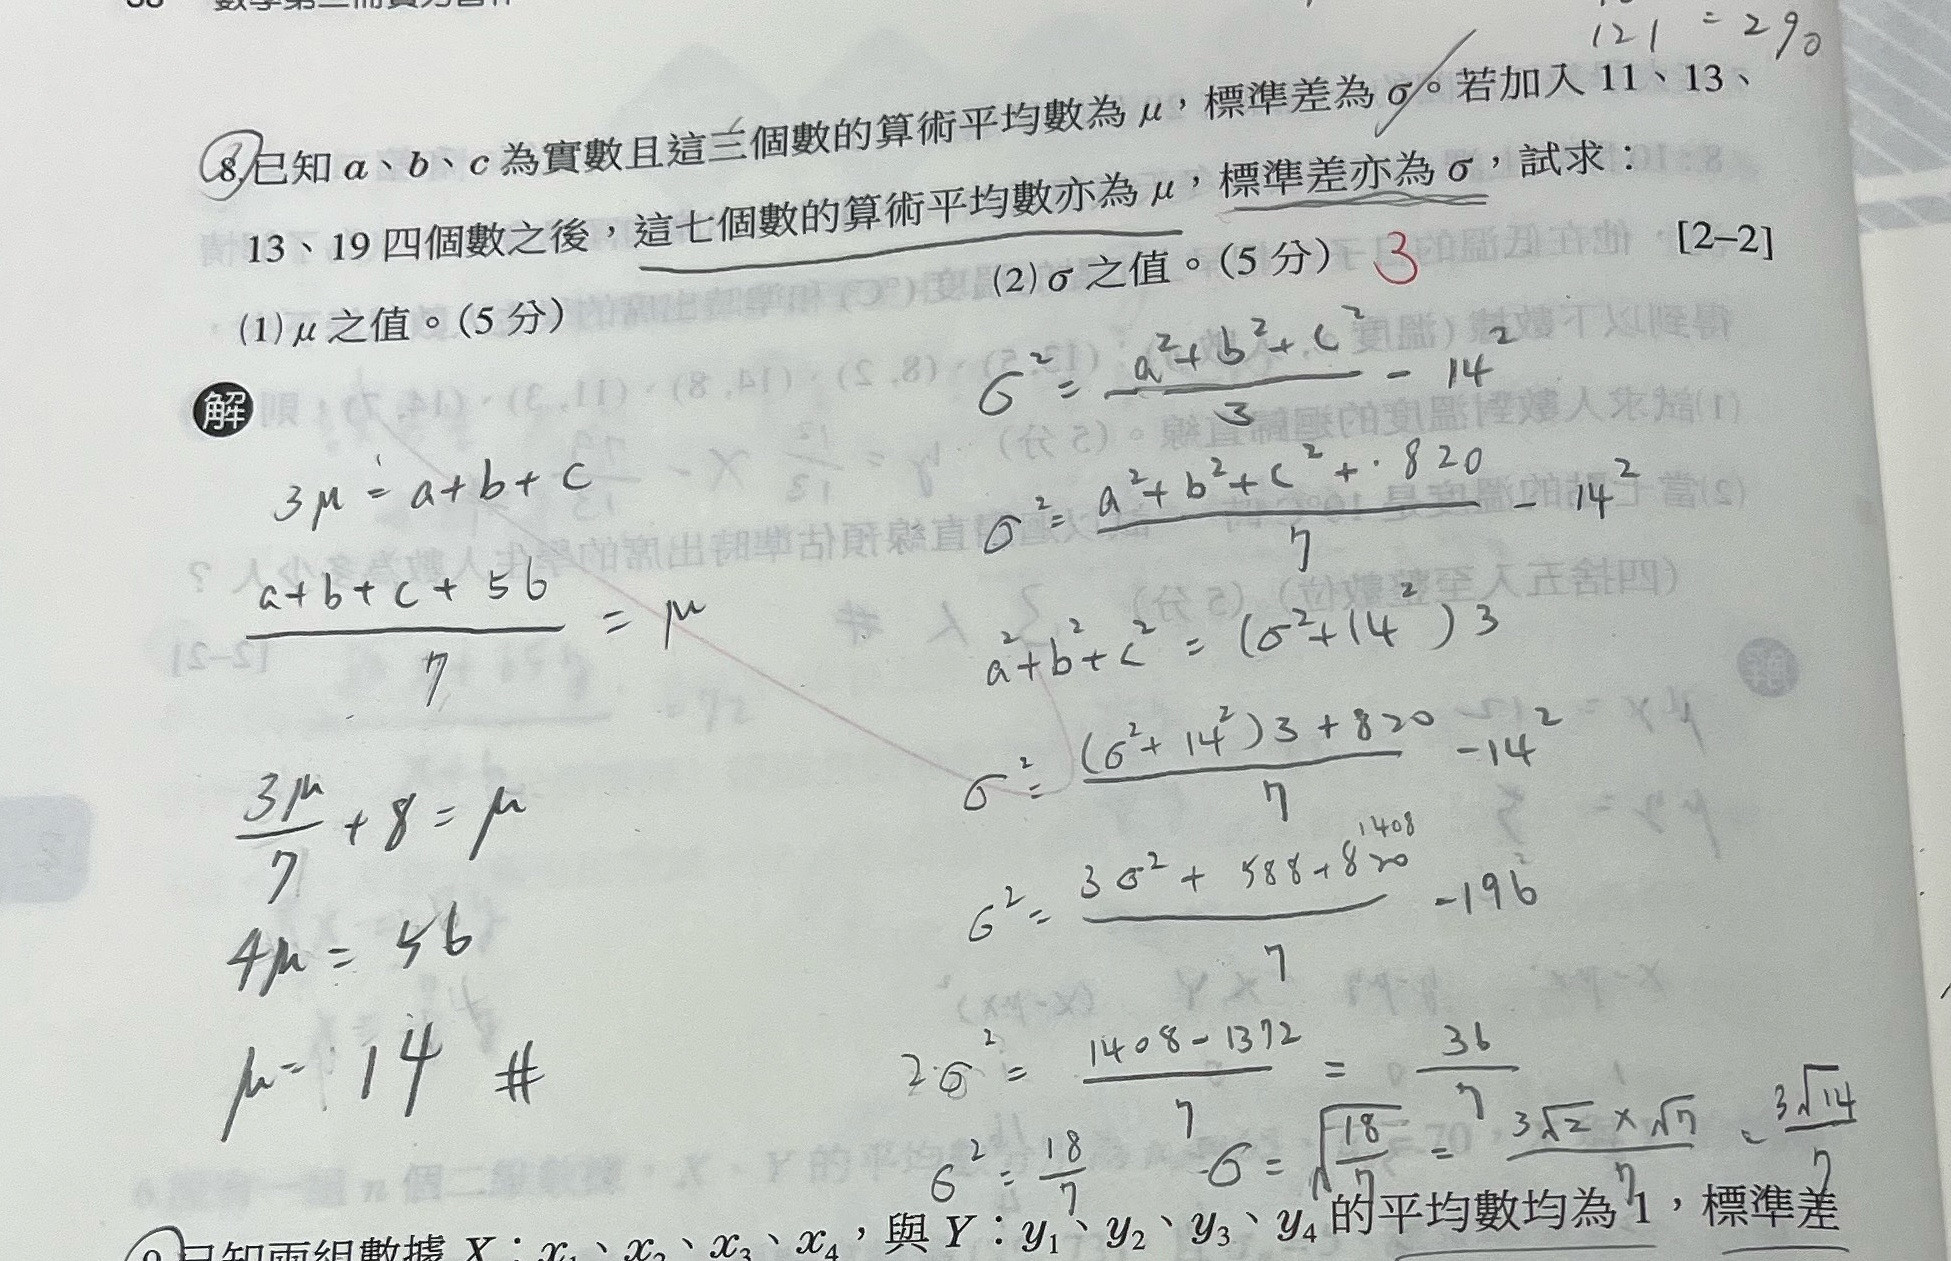 121 = 290
8. 已知 a、b、c 為實數且這三個數的算術平均數為 μ,標準差為 σ。若加入 11、13、
13、19 四個數之後,這七個數的算術平均數亦為 μ,標準差亦為 σ,試求:
(1) μ 之值。(5 分) (2) σ 之值。(5 分) 3 [2-2]
解
3μ = a+b+c
(a+b+c+56)/7 = μ
3μ/7 + 8 = μ
4μ = 56
μ = 14 #
σ² = (a²+b²+c²)/3 - 14²
σ² = (a²+b²+c²+820)/7 - 14²
a²+b²+c² = (σ²+14²)3
σ² = ((σ²+14²)3+820)/7 - 14²
1408
σ² = (3σ²+588+820)/7 - 196
2σ² = (1408-1372)/7 = 36/7
σ² = 18/7 σ = √(18/7) = (3√2×√7)/7 = 3√14/7
已知兩組數據 X:x₁、x₂、x₃、x₄,與 Y:y₁、y₂、y₃、y₄ 的平均數均為 1,標準差